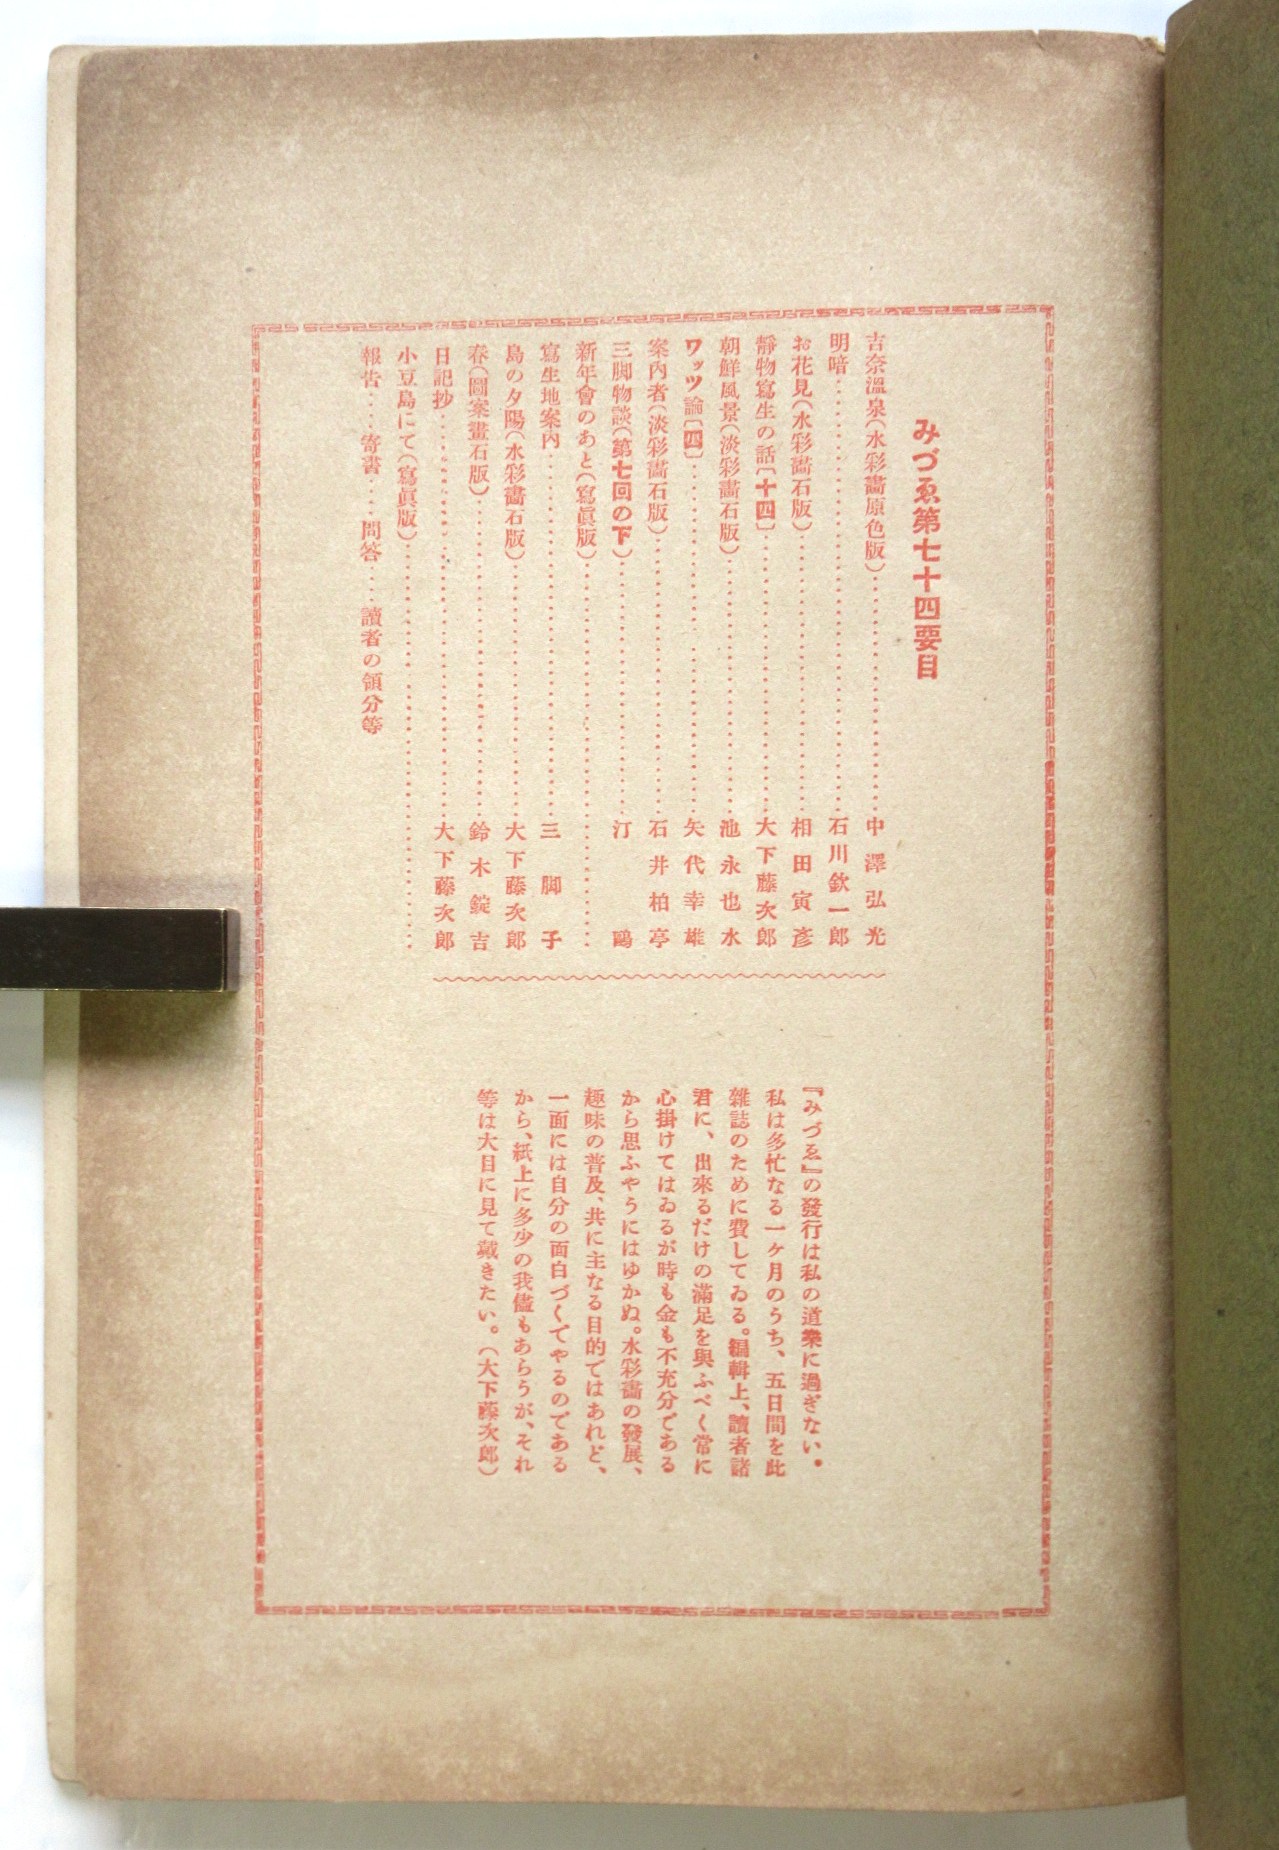 みづゑ第七十四要目
吉奈溫泉(水彩畫原色版)……中澤弘光
明暗……石川欽一郎
お花見(水彩畫石版)……相田寅彥
靜物寫生の話〔十四〕……大下藤次郎
朝鮮風景(淡彩畫石版)……池永也水
ワッツ論〔四〕……矢代幸雄
案內者(淡彩畫石版)……石井柏亭
三脚物談(第七回の下)……汀鷗
新年會のあと(寫眞版)……
寫生地案內……三脚子
島の夕陽(水彩畫石版)……大下藤次郎
春(圖案畫石版)……鈴木錠吉
日記抄……大下藤次郎
小豆島にて(寫眞版)……
報告……寄書……問答……讀者の領分等
『みづゑ』の發行は私の道樂に過ぎない。
私は多忙なる一ケ月のうち、五日間を此
雜誌のために費してゐる。編輯上、讀者諸
君に、出來るだけの滿足を與ふべく常に
心掛けてはゐるが時も金も不充分である
から思ふやうにはゆかぬ。水彩畫の發展、
趣味の普及、共に主なる目的ではあれど、
一面には自分の面白づくでやるのである
から、紙上に多少の我儘もあらうが、それ
等は大目に見て戴きたい。(大下藤次郎)